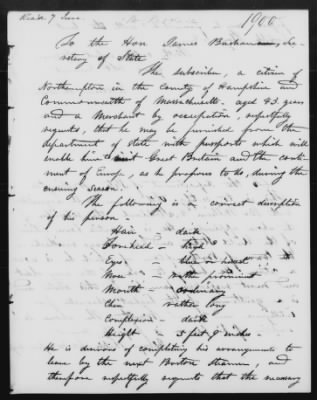 Recd. 7 June
1900
To the Hon James Buchanan, Se-
cretary of State
The subscriber, a citizen of
Northampton in the county of Hampshire and
Commonwealth of Massachusetts - aged 43 years
and a Merchant by occupation, respectfully
requests, that he may be furnished from the
department of state with passports which will
enable him to visit Great Britain and the conti-
nent of Europe, as he proposes to do, during the
ensuing season.
The following is a correct description
of his person -
Hair - dark
Forehead - high
Eyes - blue or hazel
Nose - rather prominent
Mouth - ordinary
Chin rather long
Complexion - dark
Height - 5 feet 9 inches -
He is desirous of completing his arrangements to
leave by the next Boston steamer, and
therefore respectfully requests that the necessary